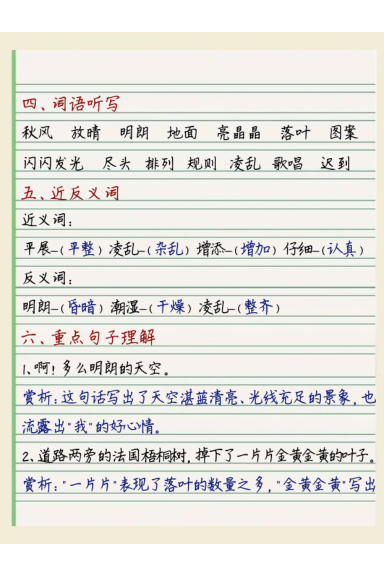 四、词语听写
秋风 放晴 明朗 地面 亮晶晶 落叶 图案
闪闪发光 尽头 排列 规则 凌乱 歌唱 迟到
五、近反义词
近义词：
平展-(平整) 凌乱-(杂乱) 增添-(增加) 仔细-(认真)
反义词：
明朗-(昏暗) 潮湿-(干燥) 凌乱-(整齐)
六、重点句子理解
1、啊！多么明朗的天空。
赏析：这句话写出了天空湛蓝清亮、光线充足的景象，也
流露出"我"的好心情。
2、道路两旁的法国梧桐树，掉下了一片片金黄金黄的叶子。
赏析："一片片"表现了落叶的数量之多，"金黄金黄"写出